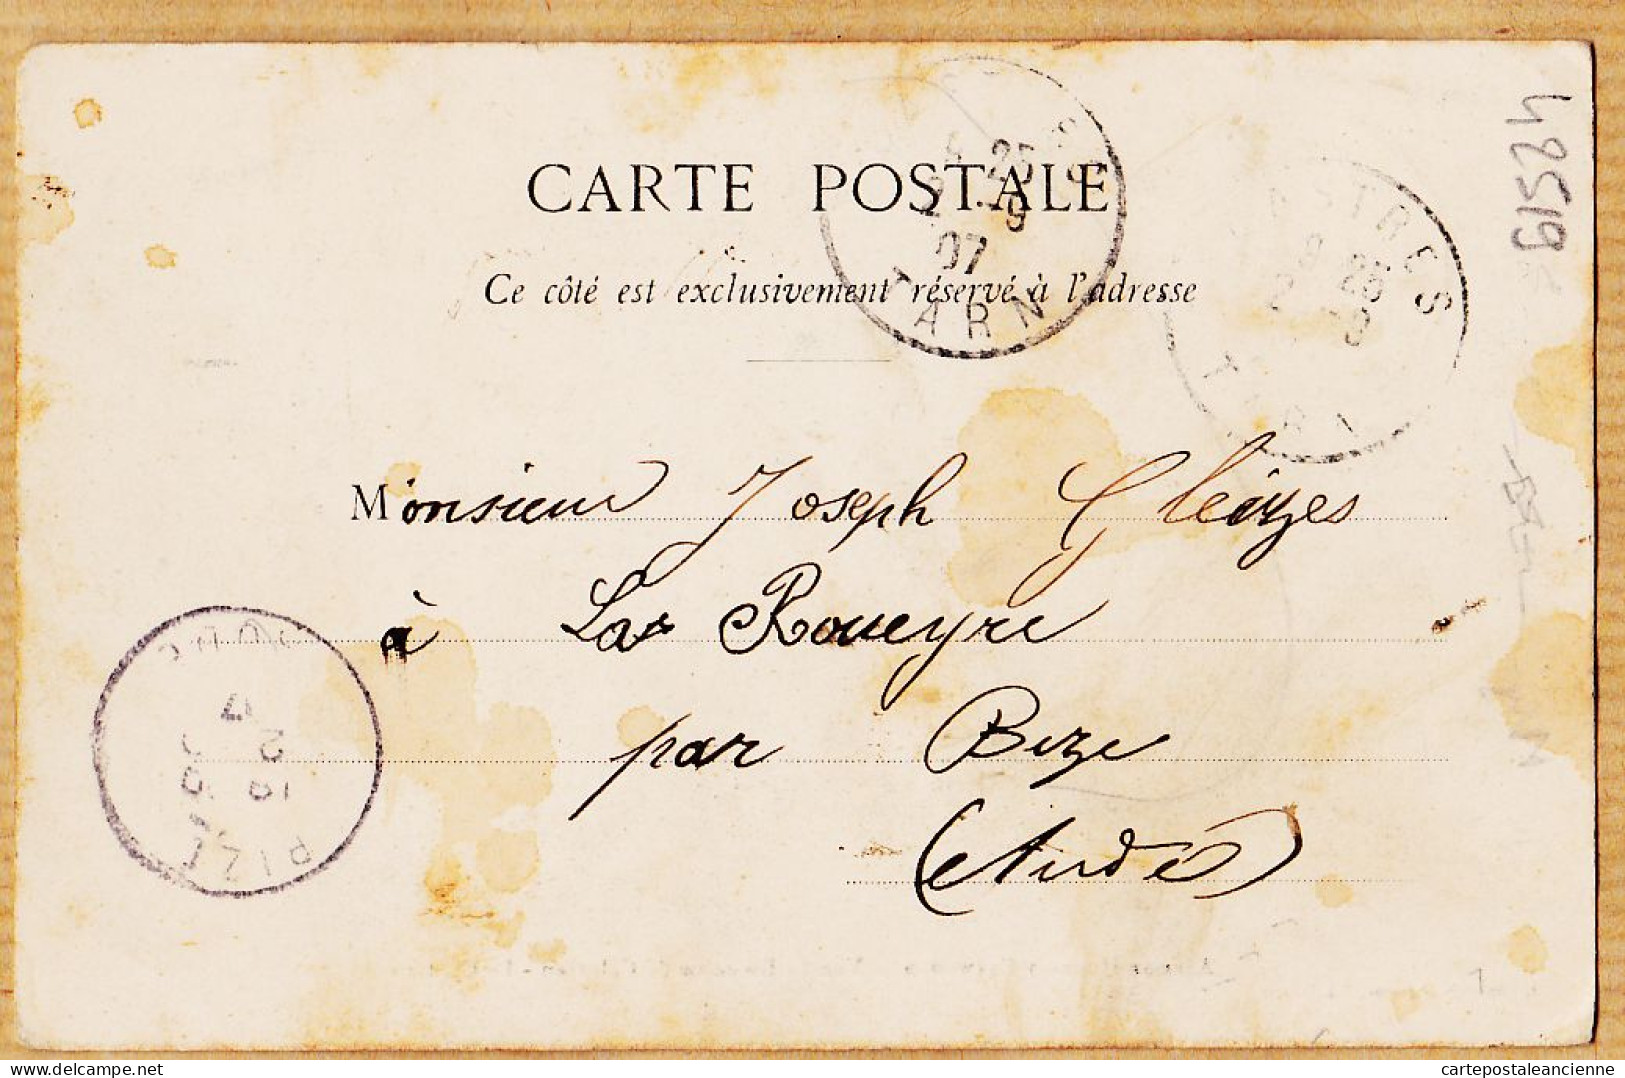 CARTE POSTALE
Ce côté est exclusivement réservé à l'adresse
25
9
07
TARN
ASTRES
25
61524
Monsieur Joseph Gleizes
à La Roueyre
par Bize
(Aude)
delcampe.net
cartepostaleancienne